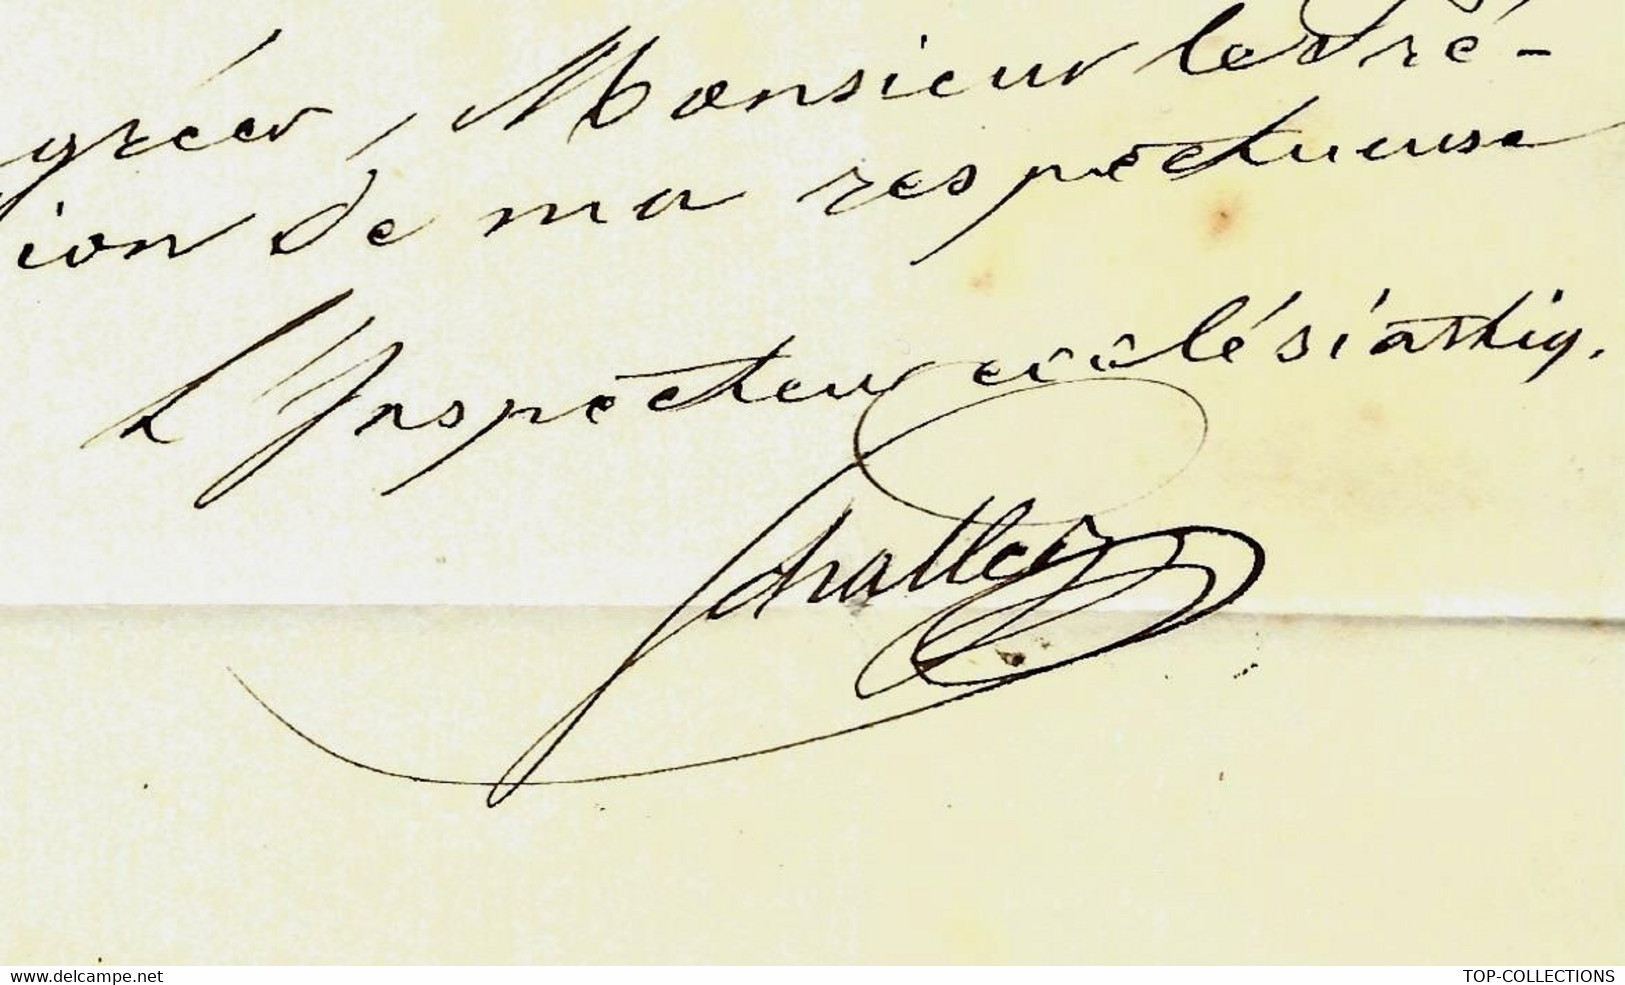 gréer, Monsieur le Pré-
ion de ma respectueuse
L'Inspecteur ecclésiastiq.
Schaller
www.delcampe.net
TOP-COLLECTIONS